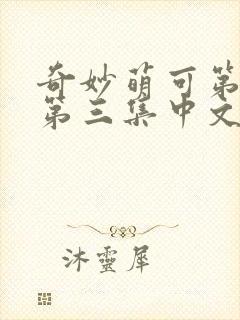 奇妙萌可第
第三集中文
沐靈犀